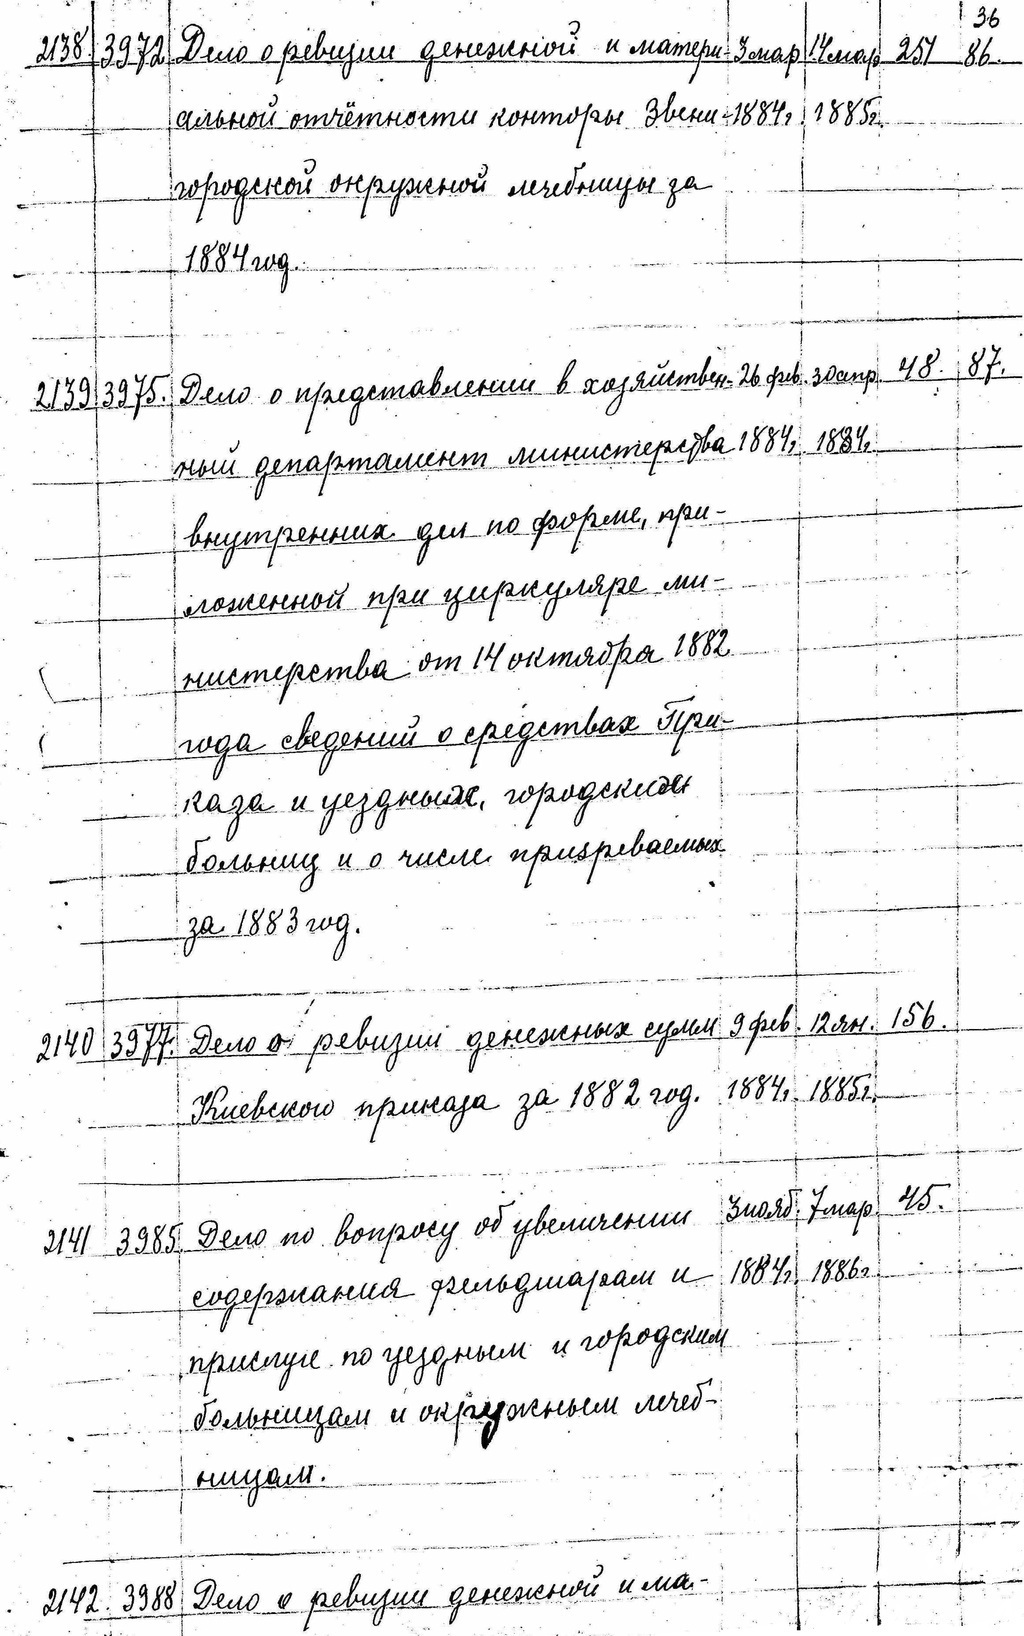 36
2138 3972 Дело о ревизии денежной и матери- 3 мар 14 мар 251 86.
альной отчётности конторы Звени- 1884г. 1885г.
городской окружной лечебницы за
1884 год.
2139 3975. Дело о представлении в хозяйствен- 26 фев. 30 апр 48. 87.
ный департамент министерства 1884г. 1884г.
внутренних дел по форме, при-
ложенной при циркуляре ми-
нистерства от 14 октября 1882
года сведений о средствах При-
каза и уездных, городских
больниц и о числе призреваемых
за 1883 год.
2140 3977. Дело о ревизии денежных сумм 9 фев. 12 ян. 156.
Киевского приказа за 1882 год. 1884г. 1885г.
2141 3985 Дело по вопросу об увеличении 3 нояб. 7 мар 45.
содержания фельдшарам и 1884г. 1886г.
прислуге по уездным и городским
больницам и окружным лечеб-
ницам.
2142. 3988 Дело о ревизии денежной и ма-